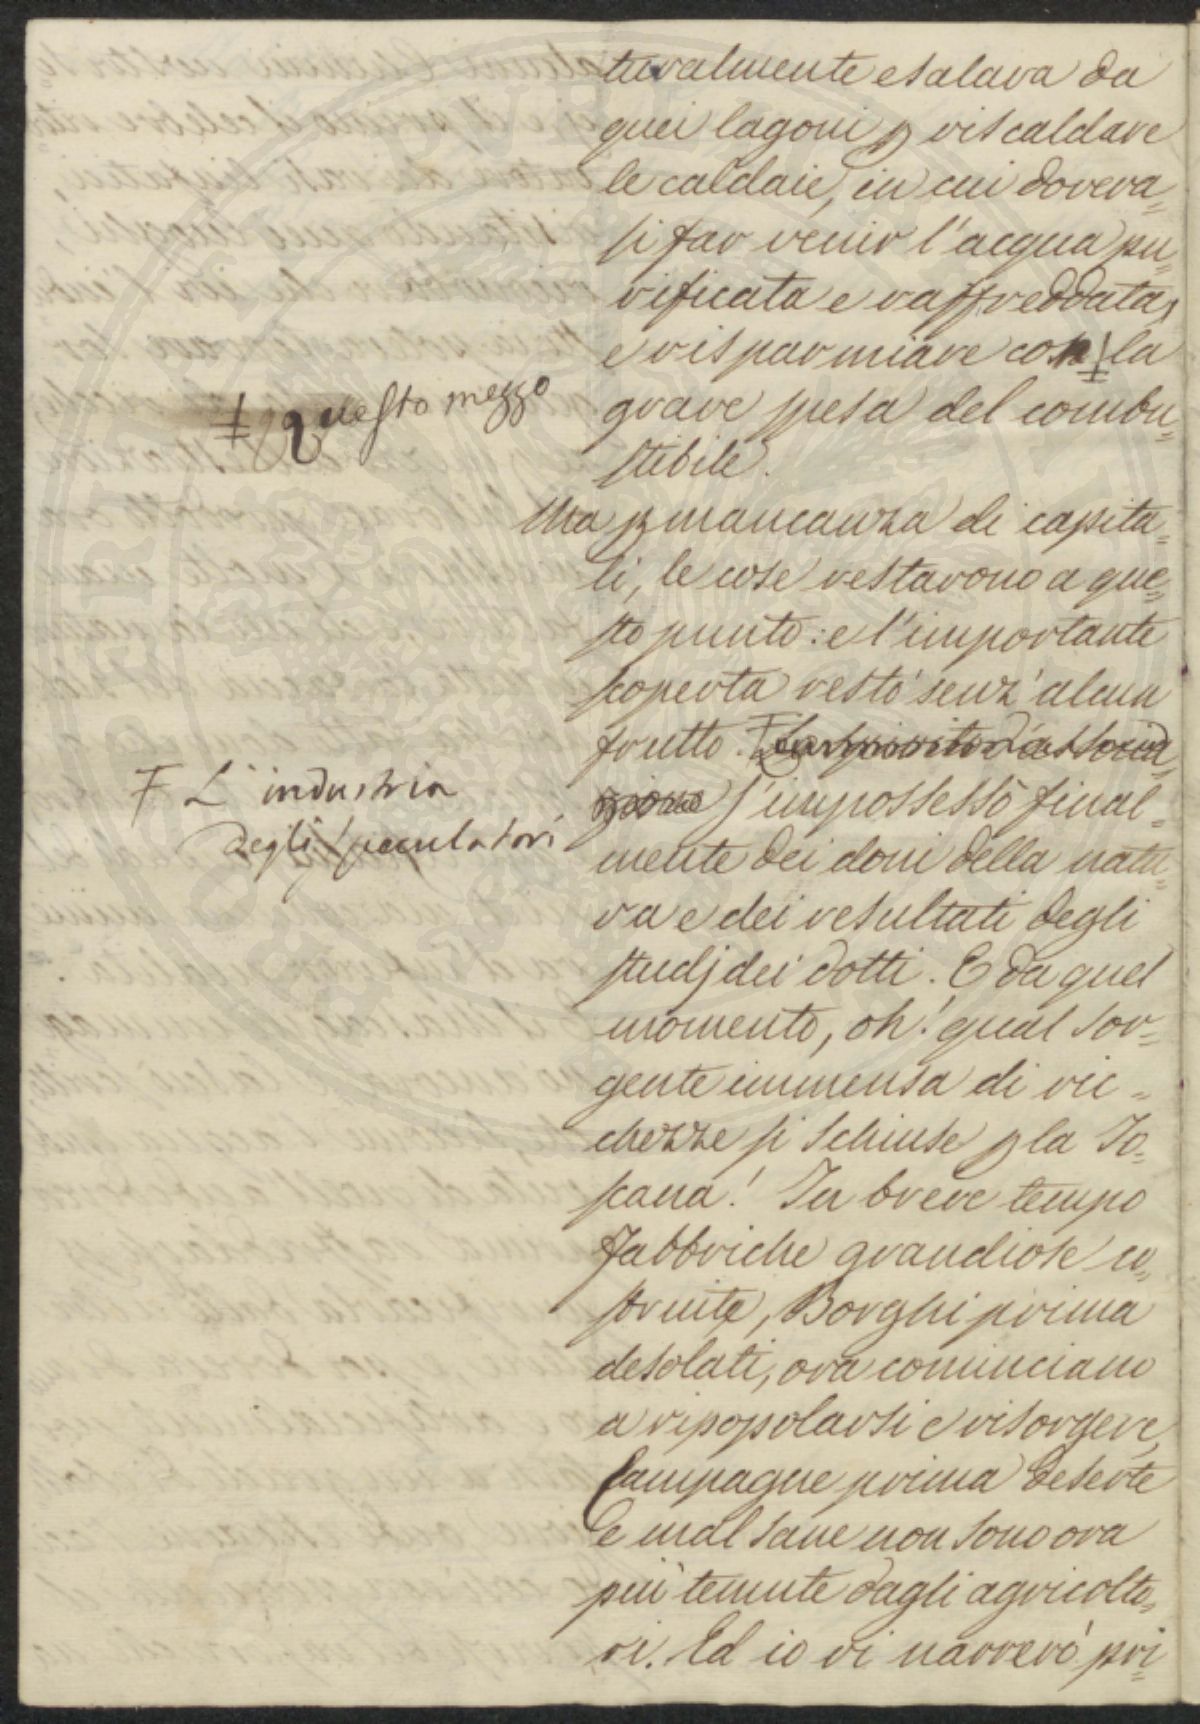 turalmente esalava da
quei lagoni p riscaldare
le caldaie, in cui doveva=
si far venir l'acqua pu=
rificata e raffreddata,
e risparmiare con ‡ la
‡ questo mezzo
grave spesa del combu=
stibile.
Ma p mancanza di capita=
li, le cose restarono a que=
sto punto: e l'importante
scoperta restò senz'alcun
frutto. F Lo spirito d'associa=
F L'industria
degli speculatori
zione s'impossessò final=
mente dei doni della natu=
ra e dei resultati degli
studj dei dotti. E da quel
momento, oh! qual sor=
gente immensa di ric=
chezze si schiuse p la To=
scana! In breve tempo
Fabbriche grandiose co=
struite, Borghi prima
desolati, ora cominciano
a ripopolarsi e risorgere,
Campagne prima deserte
e mal sane non sono ora
più temute dagli agricolto=
ri. Ed io vi narrerò pri=